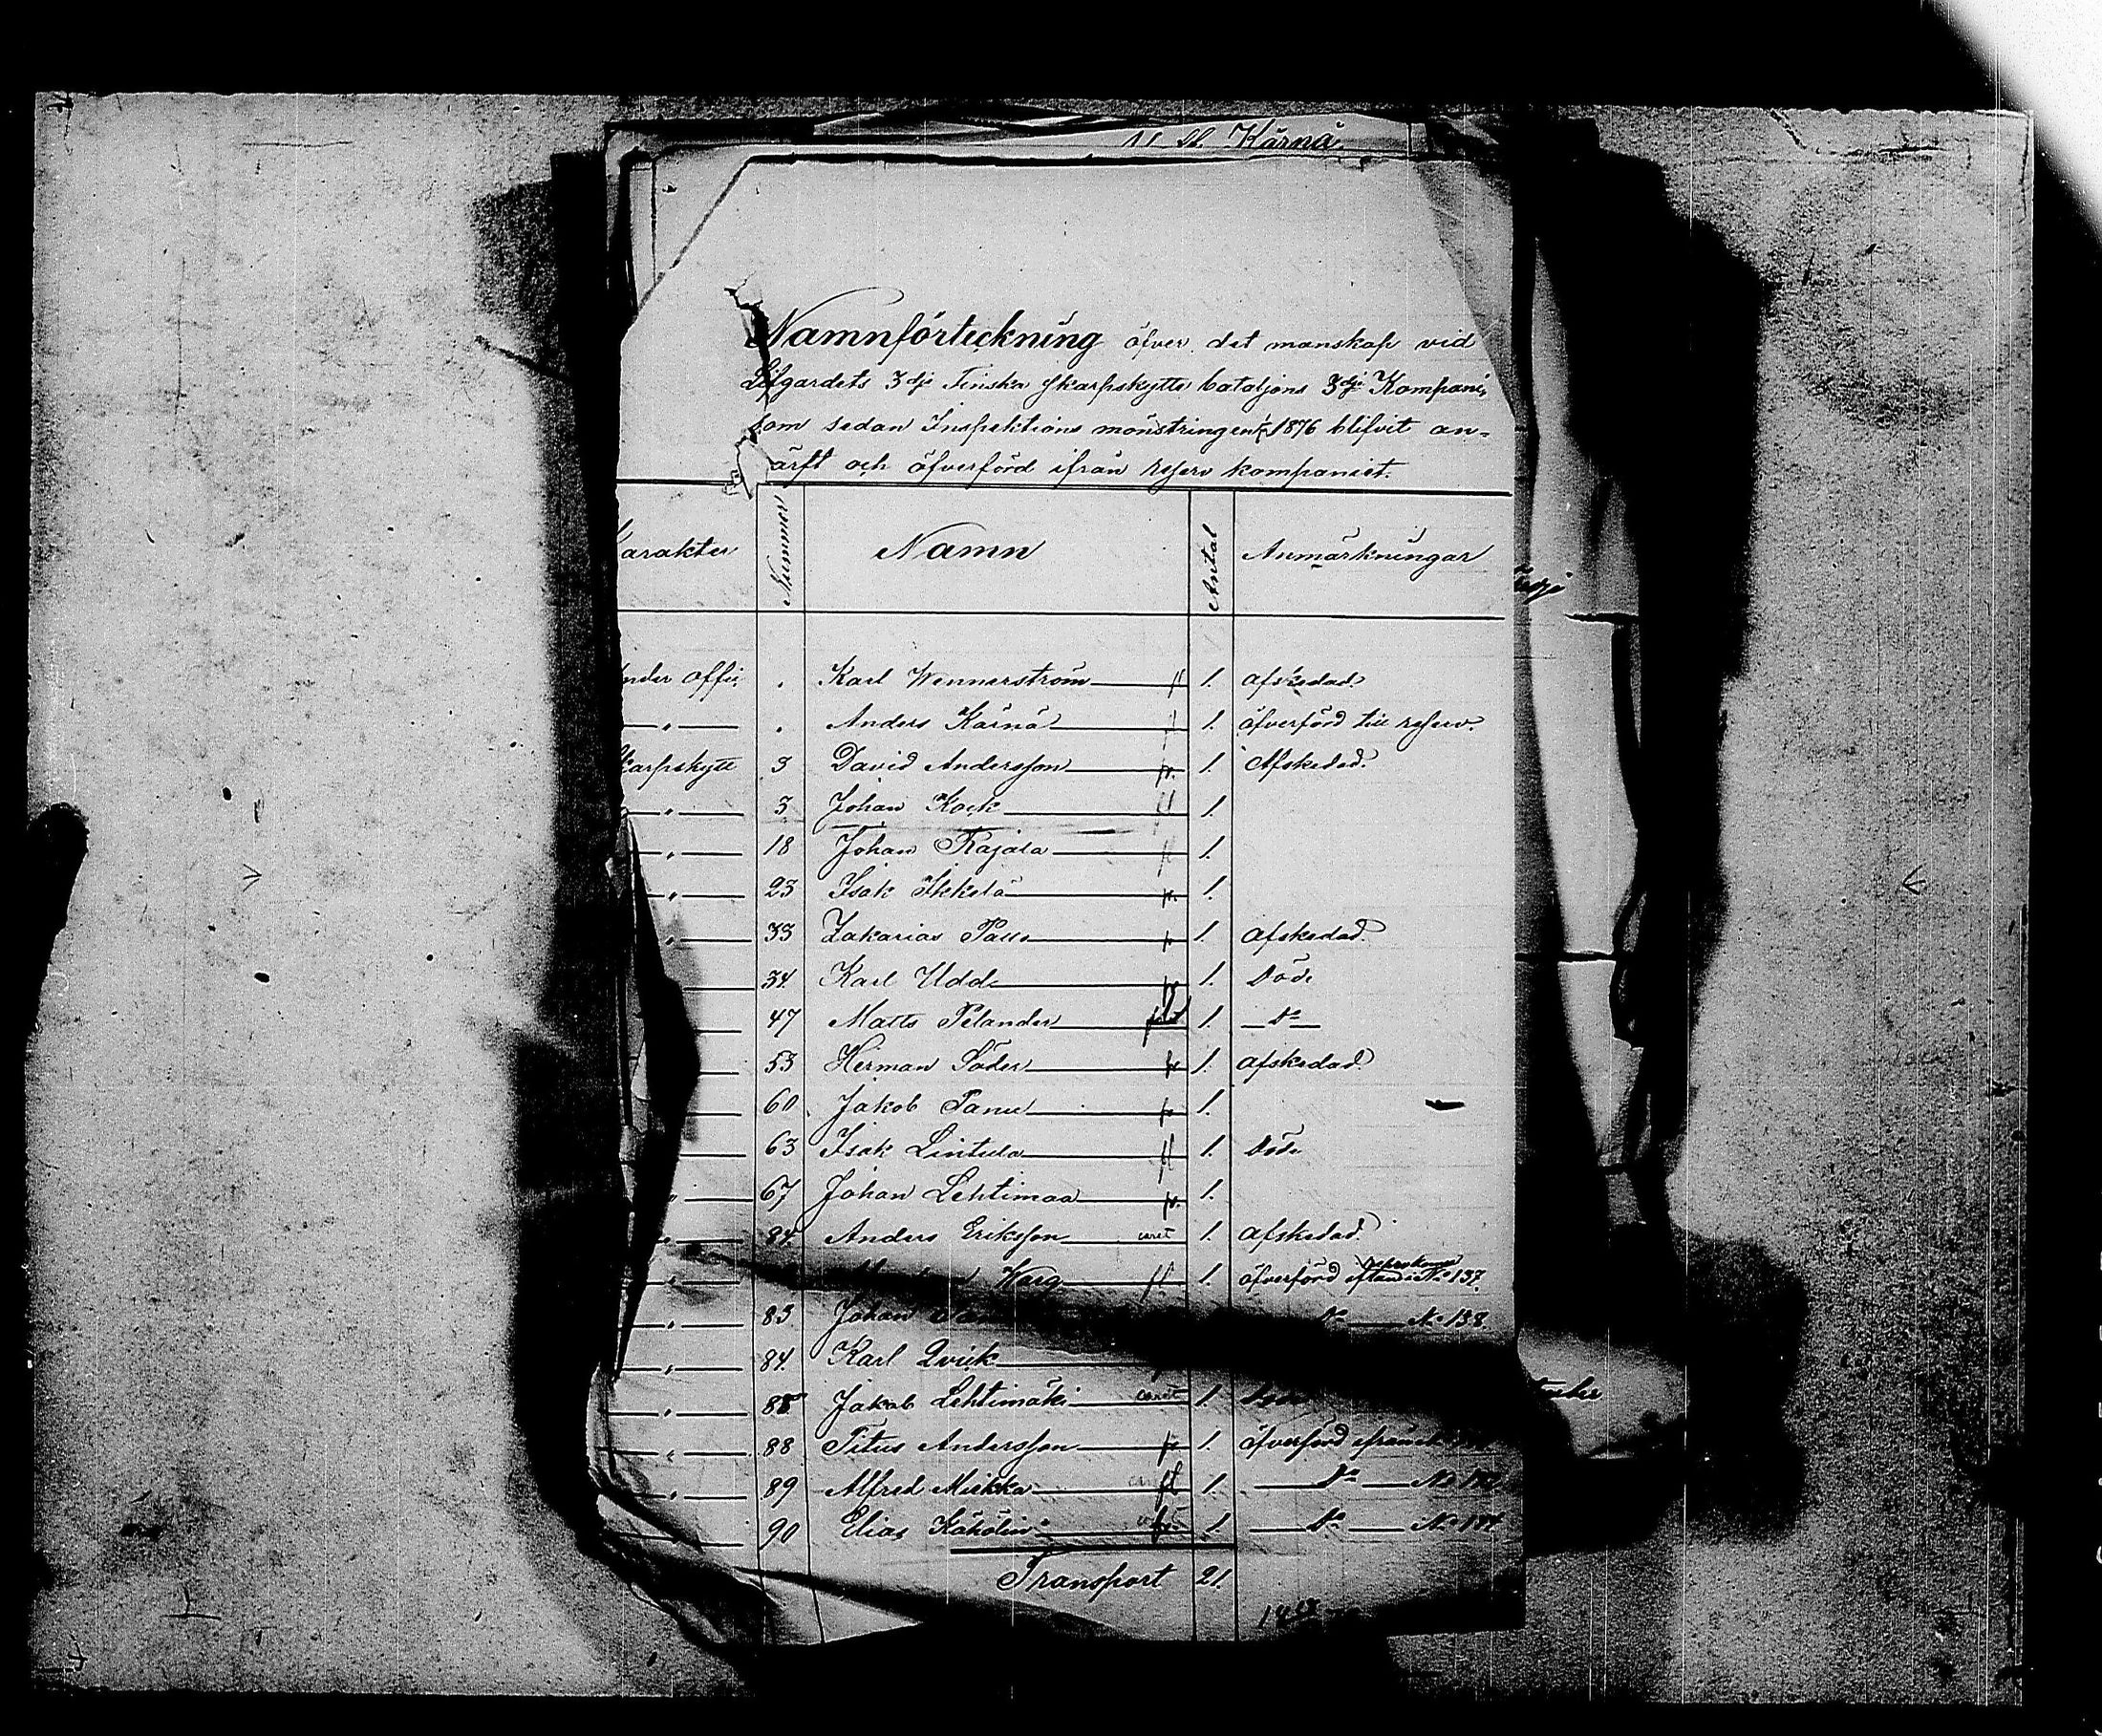 Kärnä
Namnförteckning öfver det manskap vid
Lifgardets 3dje Finska skarpskytte bataljons 3dje Kompani,
som sedan Inspektions mönstringen 1876 blifvit an=
ärft och öfverförd ifrån reserv kompaniet.
arakter Nummer Namn Antal Anmärkningar
nder offic. Karl Wennerström 1. afskedad.
" Anders Kärnä 1. öfverförd till reserv.
karpskytt 3 David Andersson 1. Afskedad.
" 3 Johan Kock 1.
" 18 Johan Rajala 1.
" 23 Isak Ikkelä 1.
" 33 Zakarias 1. afskedad.
34. Karl Udd 1. Döde
47 Matts Pelander 1. Do
53 Herman Söder 1. afskedad.
60 Jakob Panu 1.
63 Isak Lintula 1. Döde
" 67 Johan Lehtimaa 1.
" 84. Anders Eriksson 1. afskedad.
" Warg 1. öfverförd No 137.
" 83 Johan Do No 138.
" 84. Karl Qvick
" 85 Jakob Lehtimäki 1.
" 88 Titus Andersson 1. öfverförd ifrån
" 89 Alfred Miekka 1. Do No
90 Elias 1. Do No
Transport 21.